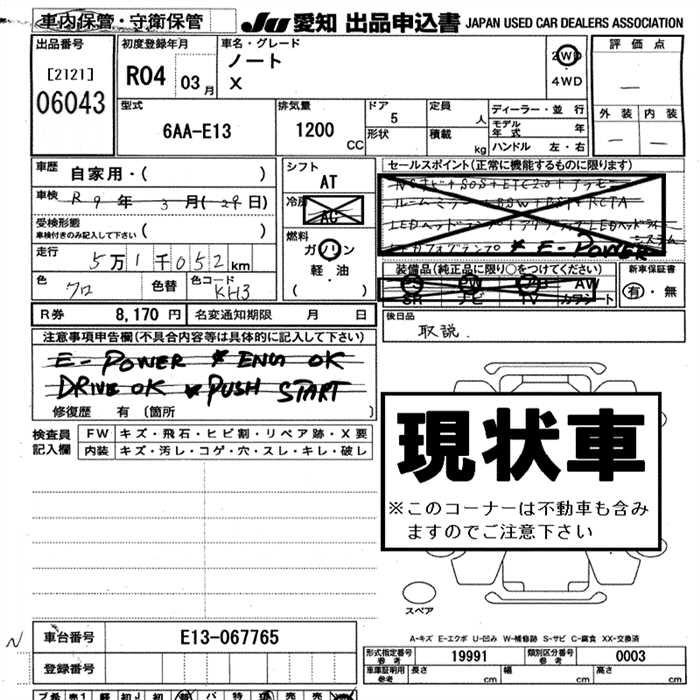 車内保管・守衛保管 JU 愛知 出品申込書 JAPAN USED CAR DEALERS ASSOCIATION
出品番号 初度登録年月 車名・グレード 評価点
[2121] R04 03月 ノート 2WD
06043 X 4WD —
型式 排気量 ドア 定員 ディーラー・並行 外装 内装
6AA-E13 1200 CC 5 人 モデル年式 年 — —
形状 積載 kg ハンドル 左・右
車歴 自家用・( ) シフト セールスポイント(正常に機能するものに限ります)
車検 R9年3月(29日) AT
受検形態 ( ) 冷房 AC
車検付きのみ記入して下さい
走行 5万1千052km 燃料 ガソリン ※ E-POWER
色 クロ 色替 色コード KH3 軽・油 ( ) 装備品(純正品に限り○をつけてください) 新車保証書
PS PW AW 有・無
SR ナビ TV カワシート
R券 8,170円 名変通知期限 月 日 後日品
注意事項申告欄(不具合内容等は具体的に記入して下さい) 取説.
E-POWER ※ ENG OK
DRIVE OK ※ PUSH START
修復歴 有 (箇所 )
検査員記入欄 FW キズ・飛石・ヒビ割・リペア跡・X要
内装 キズ・汚レ・コゲ・穴・スレ・キレ・破レ
現状車
※このコーナーは不動車も含み
ますのでご注意下さい
スペア
A-キズ E-エクボ U-凹み W-補修跡 S-サビ C-腐食 XX-交換済
N 車台番号 E13-067765
型式指定番号 参考 19991 類別区分番号 参考 0003
登録番号 車庫証明用 参考 長さ cm 幅 cm 高さ cm